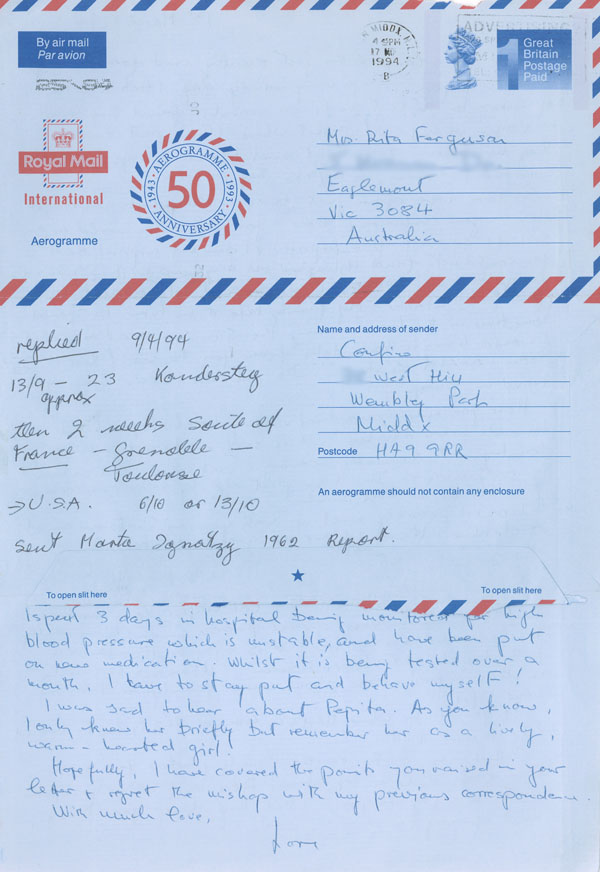 By air mail
Par avion
MIDDX
4 PM
17
1994
B
ADVERTISING
1 Great
Britain
Postage
Paid
Royal Mail
International
Aerogramme
1943 · AEROGRAMME · 1993
50
ANNIVERSARY
Mrs Rita Ferguson
Eaglemont
Vic 3084
Australia
replied 9/4/94
13/9 – 23 Kandersteg
approx
then 2 weeks South of
France – Grenoble –
Toulouse
→ U.S.A. 6/10 or 13/10
sent Marta Ignatzy 1962 Report.
Name and address of sender
Confino
West Hill
Wembley Park
Middx
Postcode HA9 9RR
An aerogramme should not contain any enclosure
To open slit here
To open slit here
I spent 3 days in hospital being monitored for high
blood pressure which is unstable, and have been put
on new medication. Whilst it is being tested over a
month, I have to stay put and behave myself!
I was sad to hear about Pepita. As you know,
I only knew her briefly but remember her as a lively,
warm-hearted girl.
Hopefully, I have covered the points you raised in your
letter & regret the mishap with my previous correspondence.
With much love,